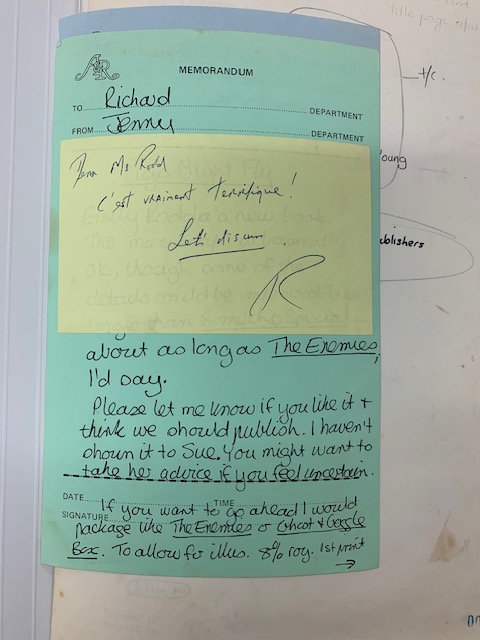 title page
t/c.
A&R
MEMORANDUM
TO Richard DEPARTMENT
FROM Jenny DEPARTMENT
Dear Ms Rodd
C'est vraiment terrifique!
Let's discuss
R
Young
ublishers
Emily Rodda's new book
ok, though some of
details could be
longer than Something Special
about as long as The Enemies,
I'd say.
Please let me know if you like it +
think we should publish. I haven't
shown it to Sue. You might want to
take her advice if you feel uncertain.
DATE TIME
SIGNATURE
If you want to go ahead I would
package like The Enemies or Ghost & Goggle
Box. To allow for illus. 8% roy. 1st print
→